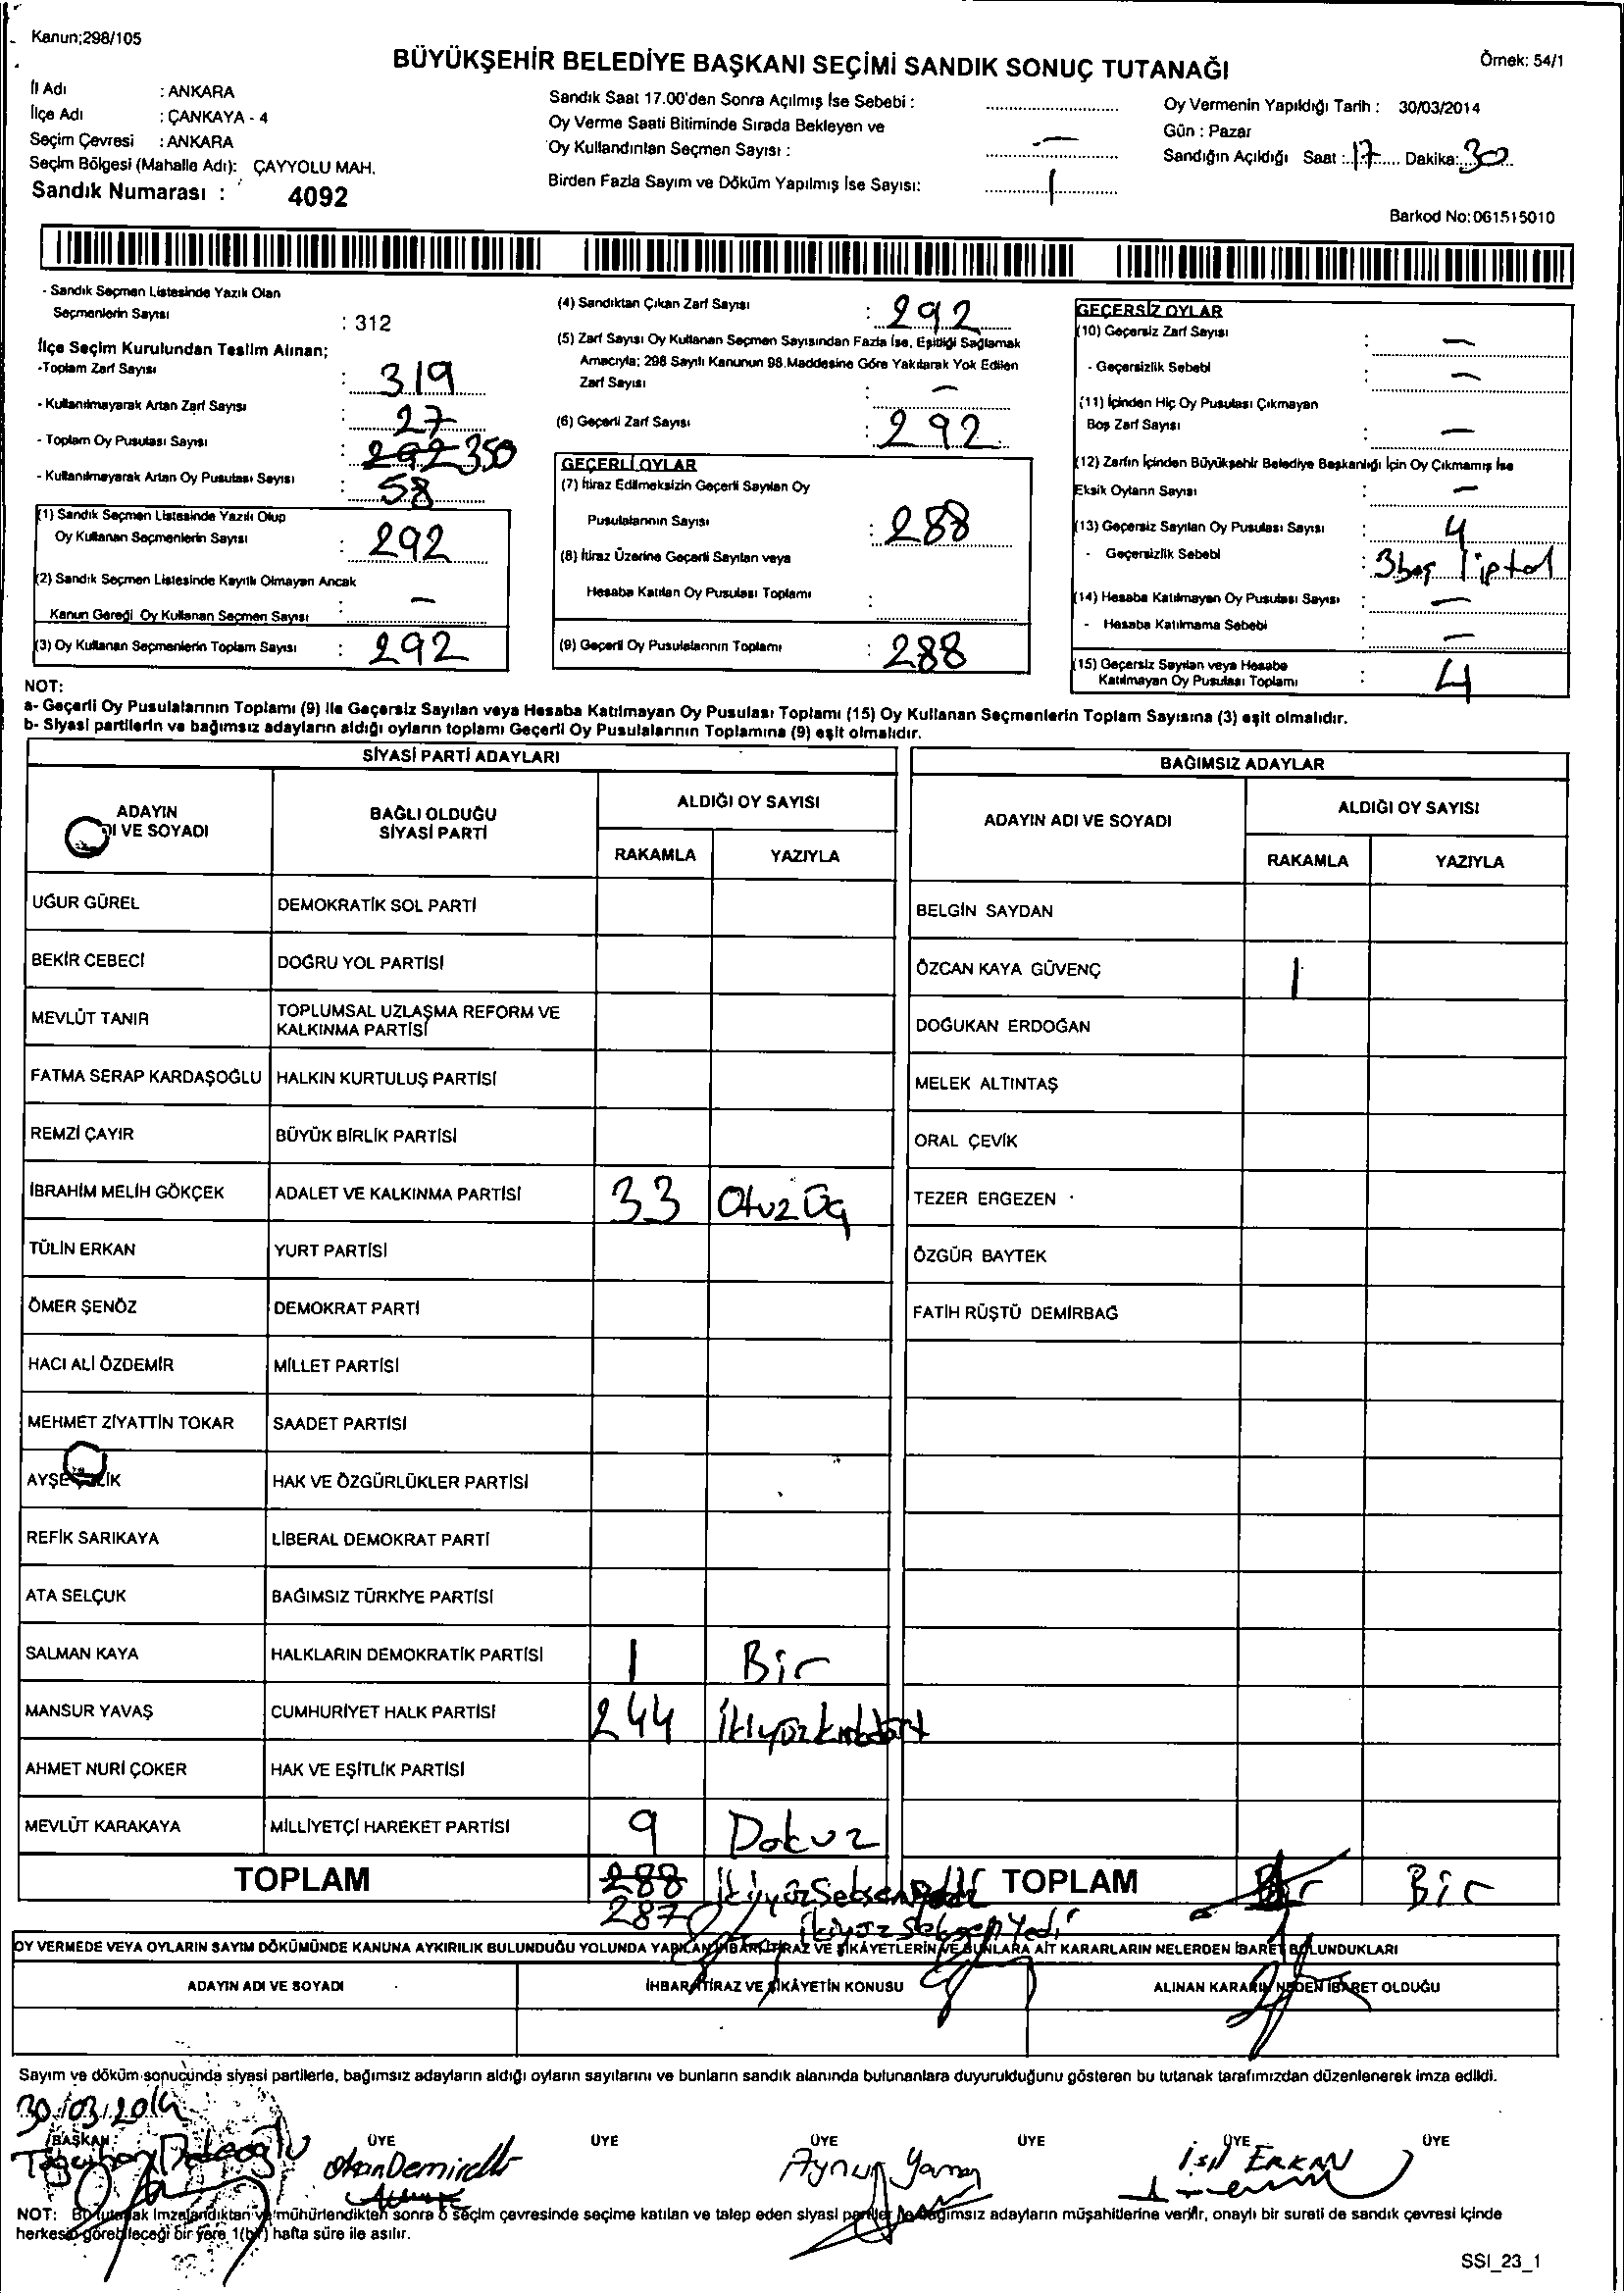 Kanun;298/105
BÜYÜKŞEHİR BELEDİYE BAŞKANI SEÇİMİ SANDIK SONUÇ TUTANAĞI
Örnek: 54/1
İl Adı : ANKARA
İlçe Adı : ÇANKAYA - 4
Seçim Çevresi : ANKARA
Seçim Bölgesi (Mahalle Adı): ÇAYYOLU MAH.
Sandık Numarası : 4092
Sandık Saat 17.00'den Sonra Açılmış İse Sebebi :
Oy Verme Saati Bitiminde Sırada Bekleyen ve
Oy Kullandırılan Seçmen Sayısı : —
Birden Fazla Sayım ve Döküm Yapılmış İse Sayısı: 1
Oy Vermenin Yapıldığı Tarih : 30/03/2014
Gün : Pazar
Sandığın Açıldığı Saat : 17 Dakika: 30
Barkod No:061515010
- Sandık Seçmen Listesinde Yazılı Olan
Seçmenlerin Sayısı : 312
İlçe Seçim Kurulundan Teslim Alınan;
-Toplam Zarf Sayısı : 319
- Kullanılmayarak Artan Zarf Sayısı : 27
- Toplam Oy Pusulası Sayısı : 292 350
- Kullanılmayarak Artan Oy Pusulası Sayısı : 58
(1) Sandık Seçmen Listesinde Yazılı Olup
Oy Kullanan Seçmenlerin Sayısı : 292
(2) Sandık Seçmen Listesinde Kayıtlı Olmayan Ancak
Kanun Gereği Oy Kullanan Seçmen Sayısı : —
(3) Oy Kullanan Seçmenlerin Toplam Sayısı : 292
(4) Sandıktan Çıkan Zarf Sayısı : 292
(5) Zarf Sayısı Oy Kullanan Seçmen Sayısından Fazla İse, Eşitliği Sağlamak
Amacıyla; 298 Sayılı Kanunun 98.Maddesine Göre Yakılarak Yok Edilen
Zarf Sayısı : —
(6) Geçerli Zarf Sayısı : 292
GEÇERLİ OYLAR
(7) İtiraz Edilmeksizin Geçerli Sayılan Oy
Pusulalarının Sayısı : 288
(8) İtiraz Üzerine Geçerli Sayılan veya
Hesaba Katılan Oy Pusulası Toplamı :
(9) Geçerli Oy Pusulalarının Toplamı : 288
GEÇERSİZ OYLAR
(10) Geçersiz Zarf Sayısı : —
- Geçersizlik Sebebi : —
(11) İçinden Hiç Oy Pusulası Çıkmayan
Boş Zarf Sayısı : —
(12) Zarfın İçinden Büyükşehir Belediye Başkanlığı İçin Oy Çıkmamış İse
Eksik Oyların Sayısı : —
(13) Geçersiz Sayılan Oy Pusulası Sayısı : 4
- Geçersizlik Sebebi : 3 boş 1 iptal
(14) Hesaba Katılmayan Oy Pusulası Sayısı : —
- Hesaba Katılmama Sebebi : —
(15) Geçersiz Sayılan veya Hesaba
Katılmayan Oy Pusulası Toplamı : 4
NOT:
a- Geçerli Oy Pusulalarının Toplamı (9) ile Geçersiz Sayılan veya Hesaba Katılmayan Oy Pusulası Toplamı (15) Oy Kullanan Seçmenlerin Toplam Sayısına (3) eşit olmalıdır.
b- Siyasi partilerin ve bağımsız adayların aldığı oyların toplamı Geçerli Oy Pusulalarının Toplamına (9) eşit olmalıdır.
SİYASİ PARTİ ADAYLARI
ADAYIN
DI VE SOYADI
BAĞLI OLDUĞU
SİYASİ PARTİ
ALDIĞI OY SAYISI
RAKAMLA YAZIYLA
UĞUR GÜREL DEMOKRATİK SOL PARTİ
BEKİR CEBECİ DOĞRU YOL PARTİSİ
MEVLÜT TANIR TOPLUMSAL UZLAŞMA REFORM VE
KALKINMA PARTİSİ
FATMA SERAP KARDAŞOĞLU HALKIN KURTULUŞ PARTİSİ
REMZİ ÇAYIR BÜYÜK BİRLİK PARTİSİ
İBRAHİM MELİH GÖKÇEK ADALET VE KALKINMA PARTİSİ 33 Otuz Üç
TÜLİN ERKAN YURT PARTİSİ
ÖMER ŞENÖZ DEMOKRAT PARTİ
HACI ALİ ÖZDEMİR MİLLET PARTİSİ
MEHMET ZİYATTİN TOKAR SAADET PARTİSİ
AYŞE HAK VE ÖZGÜRLÜKLER PARTİSİ
REFİK SARIKAYA LİBERAL DEMOKRAT PARTİ
ATA SELÇUK BAĞIMSIZ TÜRKİYE PARTİSİ
SALMAN KAYA HALKLARIN DEMOKRATİK PARTİSİ 1 Bir
MANSUR YAVAŞ CUMHURİYET HALK PARTİSİ 244 İkiyüzkırkdört
AHMET NURİ ÇOKER HAK VE EŞİTLİK PARTİSİ
MEVLÜT KARAKAYA MİLLİYETÇİ HAREKET PARTİSİ 9 Dokuz
TOPLAM 288
287 İkiyüz Seksen Yedi
BAĞIMSIZ ADAYLAR
ADAYIN ADI VE SOYADI
ALDIĞI OY SAYISI
RAKAMLA YAZIYLA
BELGİN SAYDAN
ÖZCAN KAYA GÜVENÇ 1
DOĞUKAN ERDOĞAN
MELEK ALTINTAŞ
ORAL ÇEVİK
TEZER ERGEZEN
ÖZGÜR BAYTEK
FATİH RÜŞTÜ DEMİRBAĞ
TOPLAM Bir Bir
OY VERMEDE VEYA OYLARIN SAYIM DÖKÜMÜNDE KANUNA AYKIRILIK BULUNDUĞU YOLUNDA YAPILAN İHBAR, İTİRAZ VE ŞİKÂYETLERİN VE BUNLARA AİT KARARLARIN NELERDEN İBARET BULUNDUKLARI
ADAYIN ADI VE SOYADI
İHBAR, İTİRAZ VE ŞİKÂYETİN KONUSU
ALINAN KARARIN NEDEN İBARET OLDUĞU
Sayım ve döküm sonucunda siyasi partilerle, bağımsız adayların aldığı oyların sayılarını ve bunların sandık alanında bulunanlara duyurulduğunu gösteren bu tutanak tarafımızdan düzenlenerek imza edildi.
30/03/2014
BAŞKAN ÜYE ÜYE ÜYE ÜYE ÜYE ÜYE
Aynur Işıl ERKAN
NOT: Bu tutanak imzalandıktan ve mühürlendikten sonra o seçim çevresinde seçime katılan ve talep eden siyasi partiler ile bağımsız adayların müşahitlerine verilir, onaylı bir sureti de sandık çevresi içinde
herkesin görebileceği bir yere 1(bir) hafta süre ile asılır.
SSI_23_1